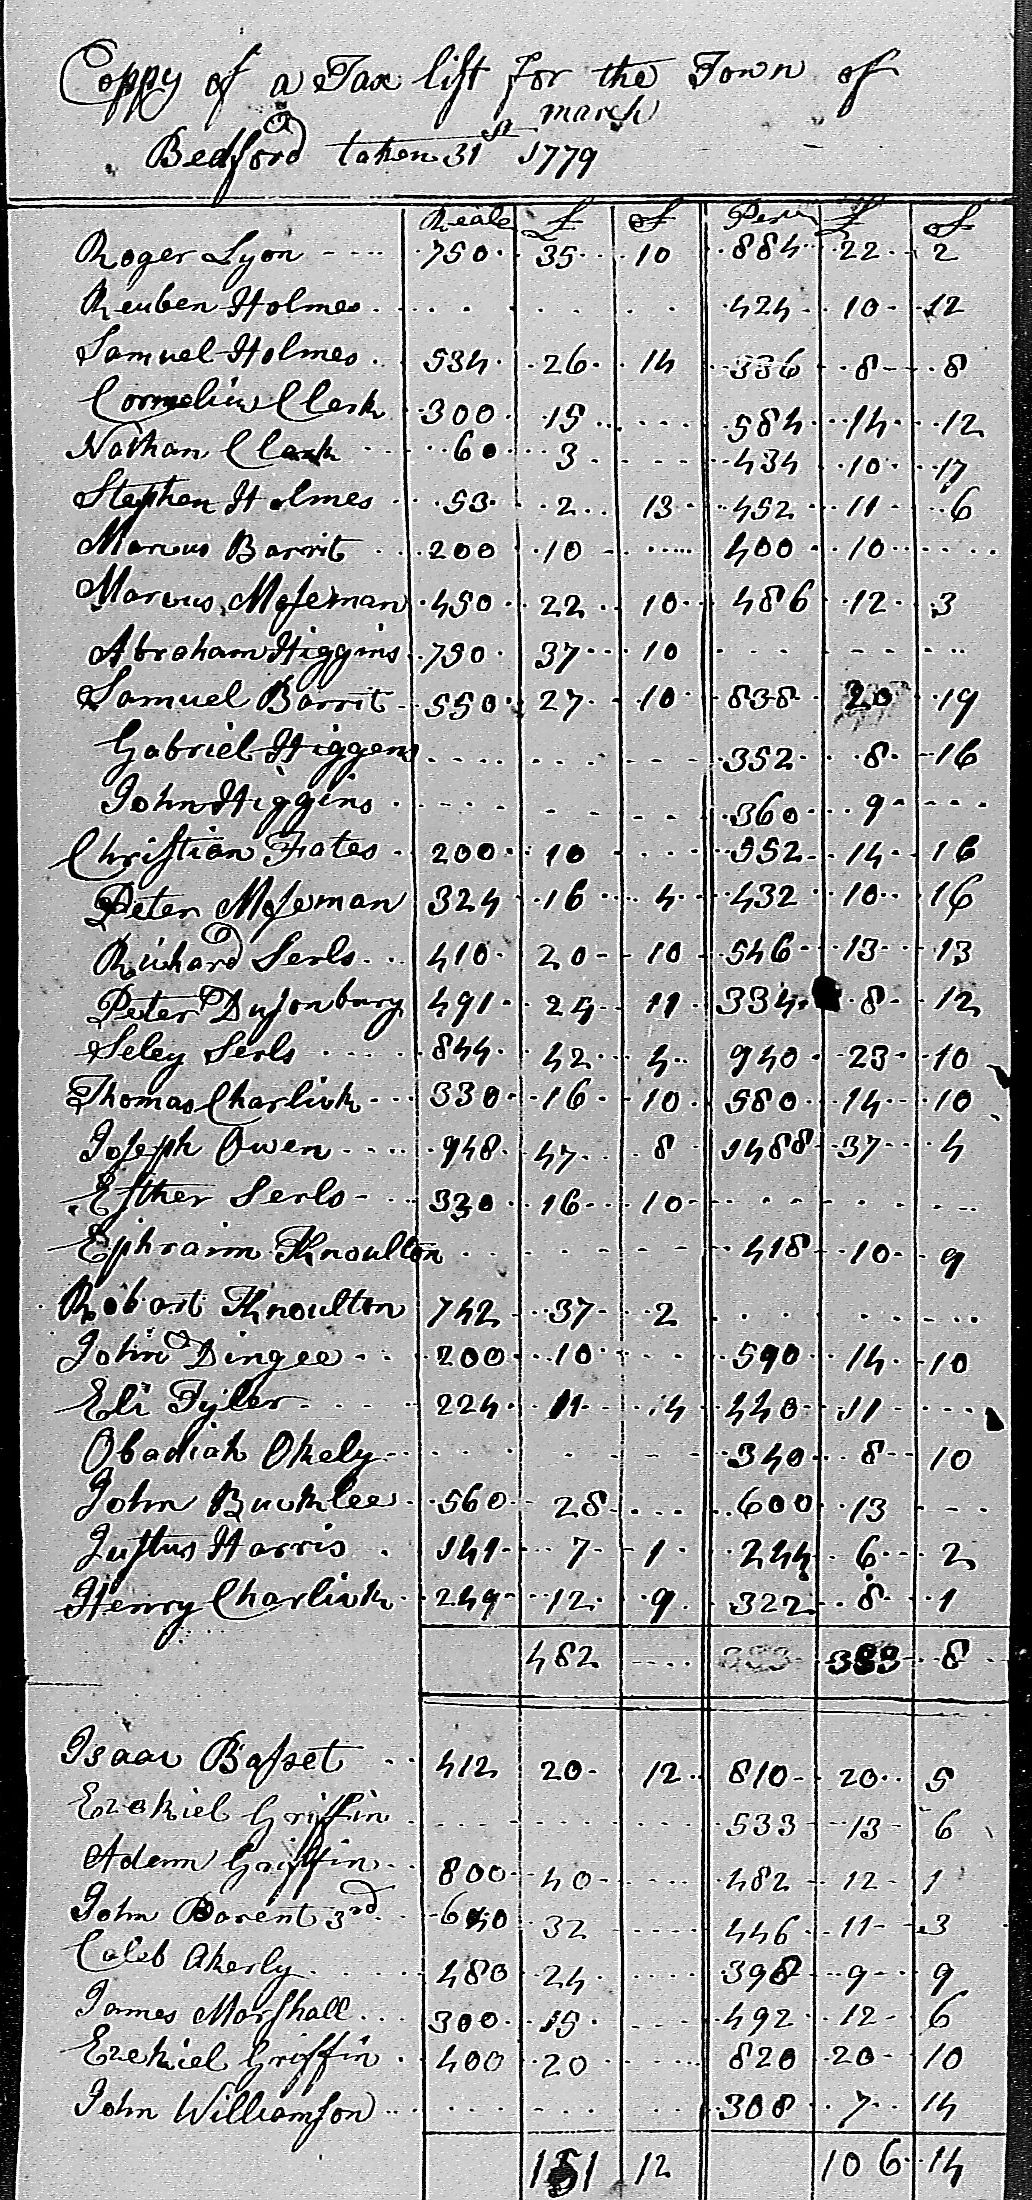 Coppy of a Tax list for the Town of
march
Bedford taken 31st 1779
Reale £ S Pers £ S
Roger Lyon 750 35 10 884 22 2
Reuben Holmes 424 10 12
Samuel Holmes 534 26 14 336 8 8
Cornelius Clark 300 15 584 14 12
Nathan Clark 60 3 434 10 17
Stephen Holmes 53 2 13 452 11 6
Marcus Barrit 200 10 400 10
Marcus Moseman 450 22 10 486 12 3
Abraham Higgins 750 37 10
Samuel Barrit 550 27 10 838 20 19
Gabriel Higgens 352 8 16
John Higgins 360 9
Christian Fates 200 10 552 14 16
Peter Moseman 324 16 4 432 10 16
Richard Serls 410 20 10 546 13 13
Peter Dusonbury 491 24 11 334 8 12
Seley Serls 844 42 4 940 23 10
Thomas Charlick 330 16 10 580 14 10
Joseph Owen 948 47 8 1488 37 4
Esther Serls 330 16 10
Ephraim Knoulton 418 10 9
Robart Knoulton 742 37 2
John Dingee 200 10 590 14 10
Eli Tyler 224 11 4 440 11
Obadiah Okely 340 8 10
John Bucklee 560 28 600 13
Justus Harris 141 7 1 244 6 2
Henry Charlick 249 12 9 322 8 1
482 333 8
Isaac Basset 412 20 12 810 20 5
Ezekiel Griffin 533 13 6
Adam Griffin 800 40 482 12 1
John Barent 3rd 640 32 446 11 3
Caleb Akerly 480 24 398 9 9
James Marshall 300 15 492 12 6
Ezekiel Griffin 400 20 820 20 10
John Williamson 308 7 14
151 12 106 14